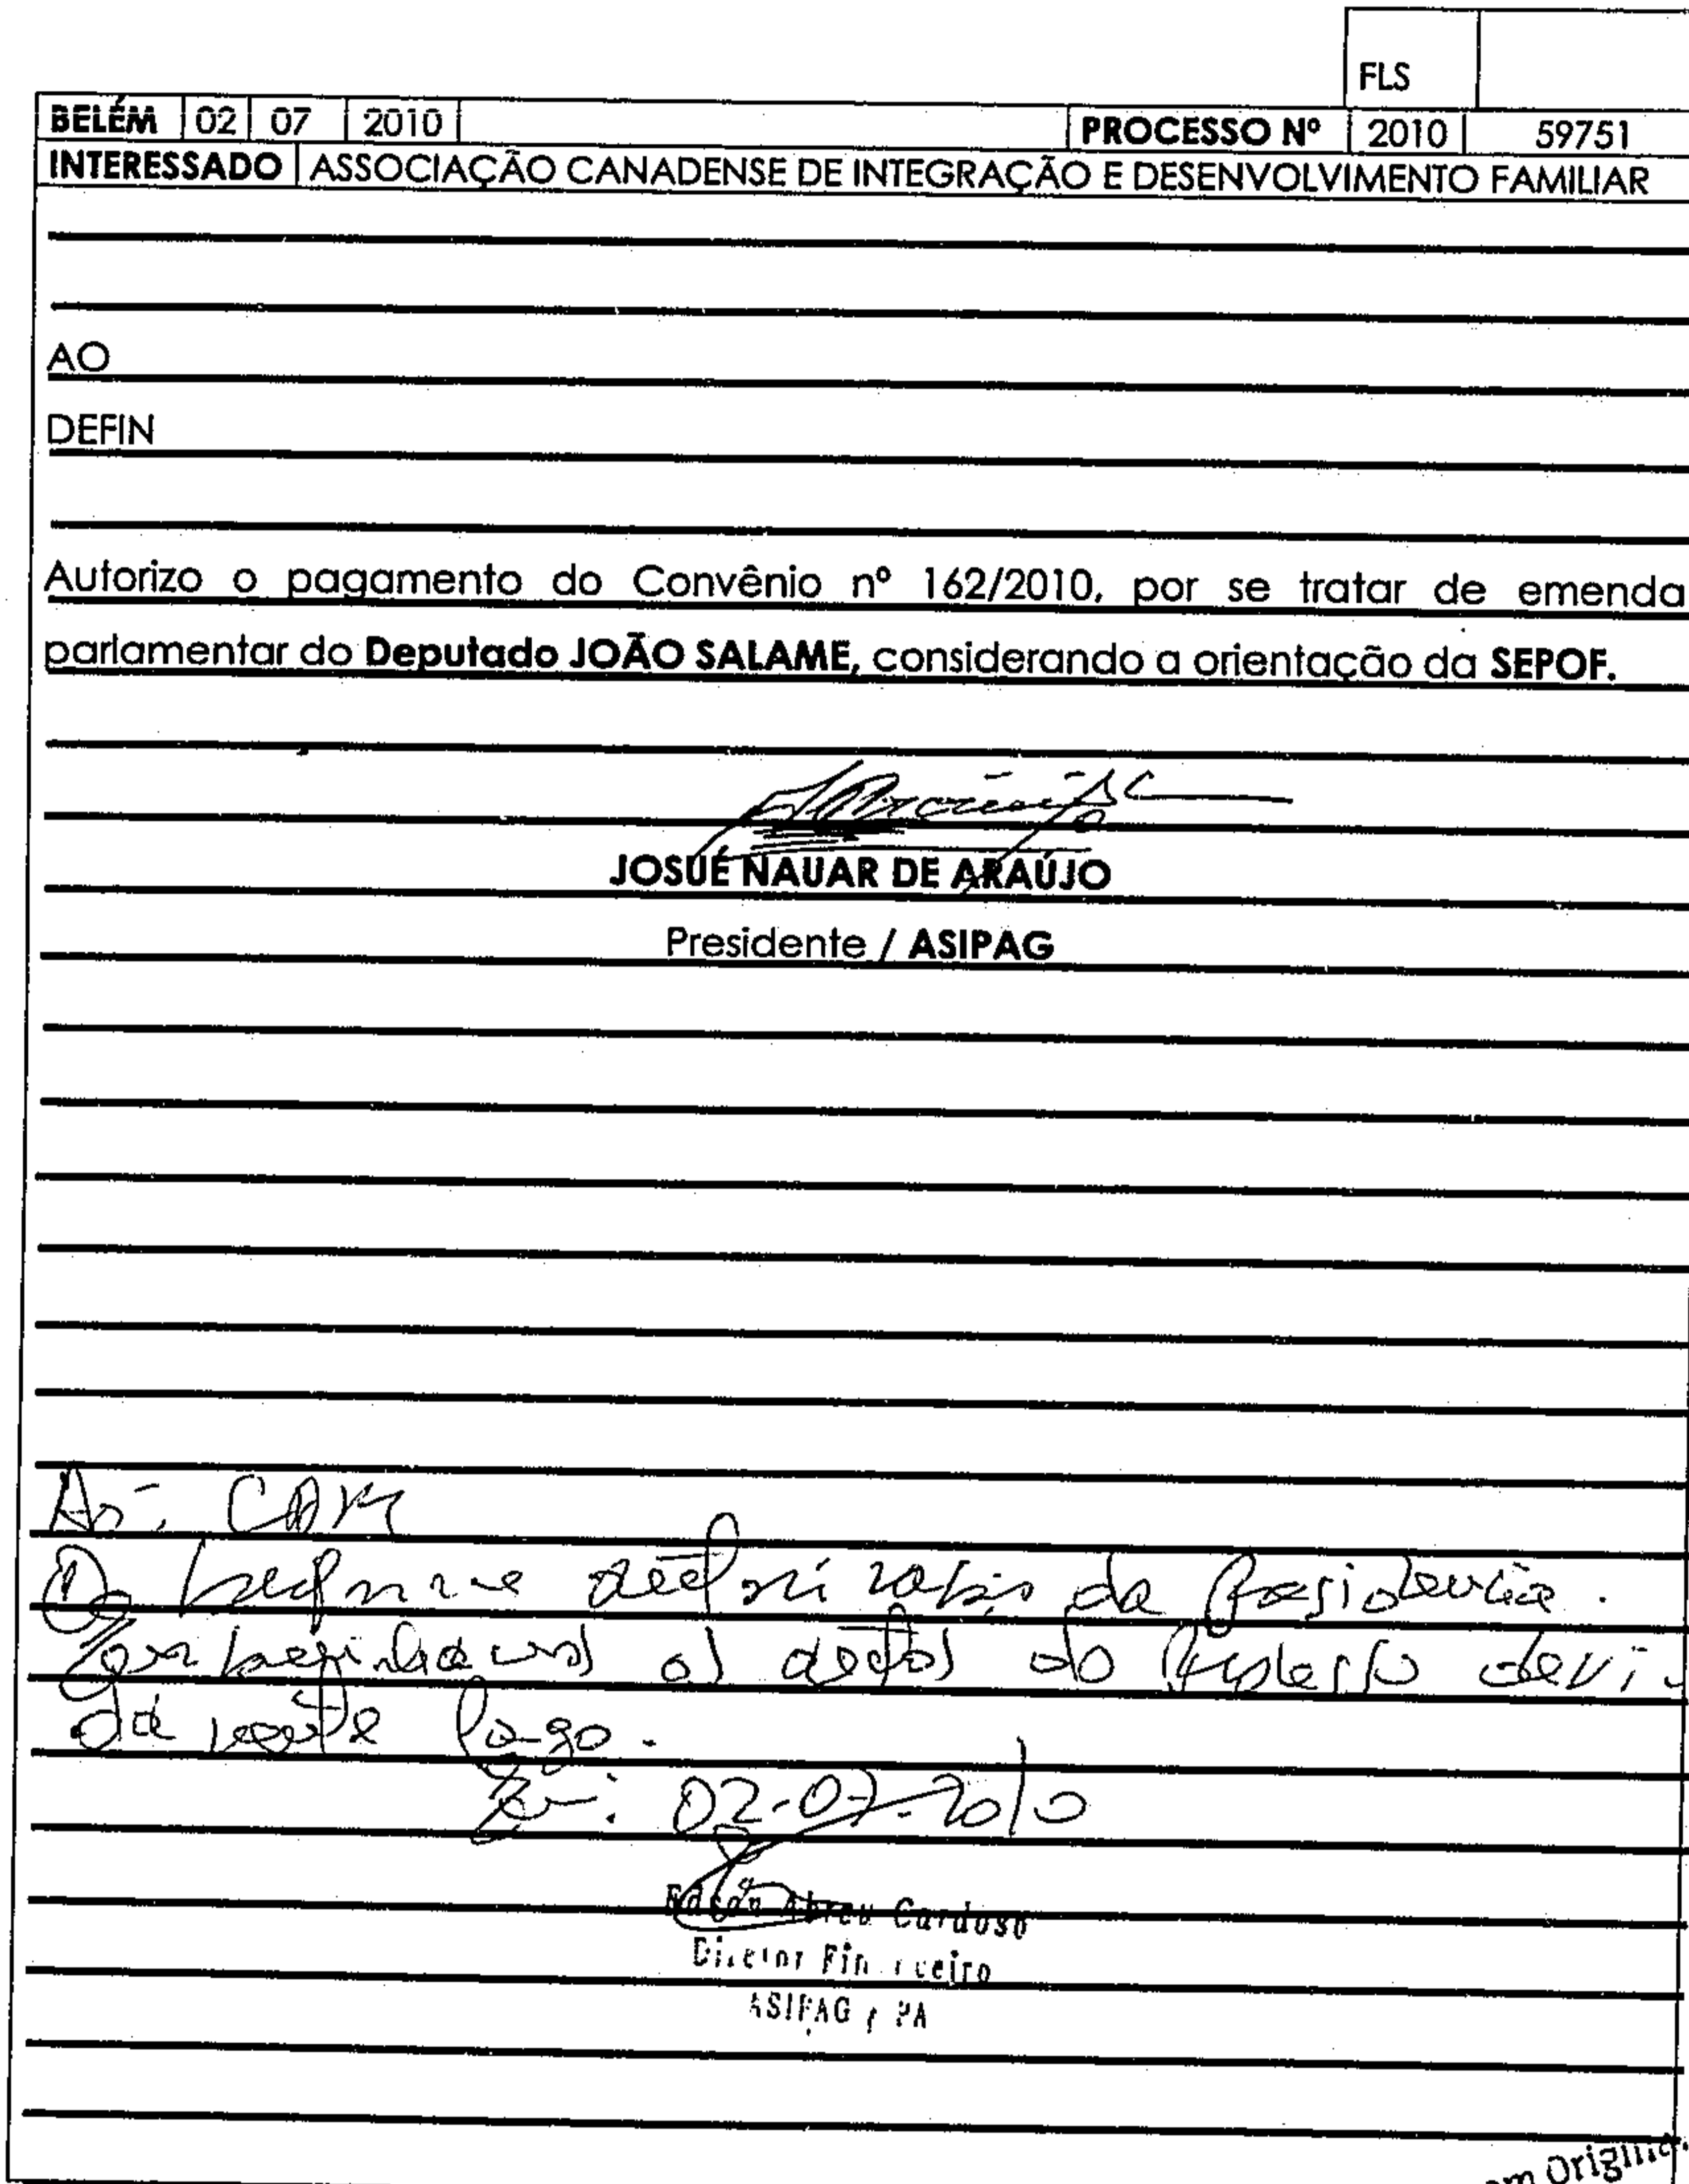 FLS
BELÉM 02 07 2010 PROCESSO Nº 2010 59751
INTERESSADO ASSOCIAÇÃO CANADENSE DE INTEGRAÇÃO E DESENVOLVIMENTO FAMILIAR
AO
DEFIN
Autorizo o pagamento do Convênio nº 162/2010, por se tratar de emenda
parlamentar do Deputado JOÃO SALAME, considerando a orientação da SEPOF.
JOSUÉ NAUAR DE ARAÚJO
Presidente / ASIPAG
da Presidencia.
os do devi-
pago.
02-07-2010
Edson Abreu Cardoso
Diretor Financeiro
ASIPAG / PA